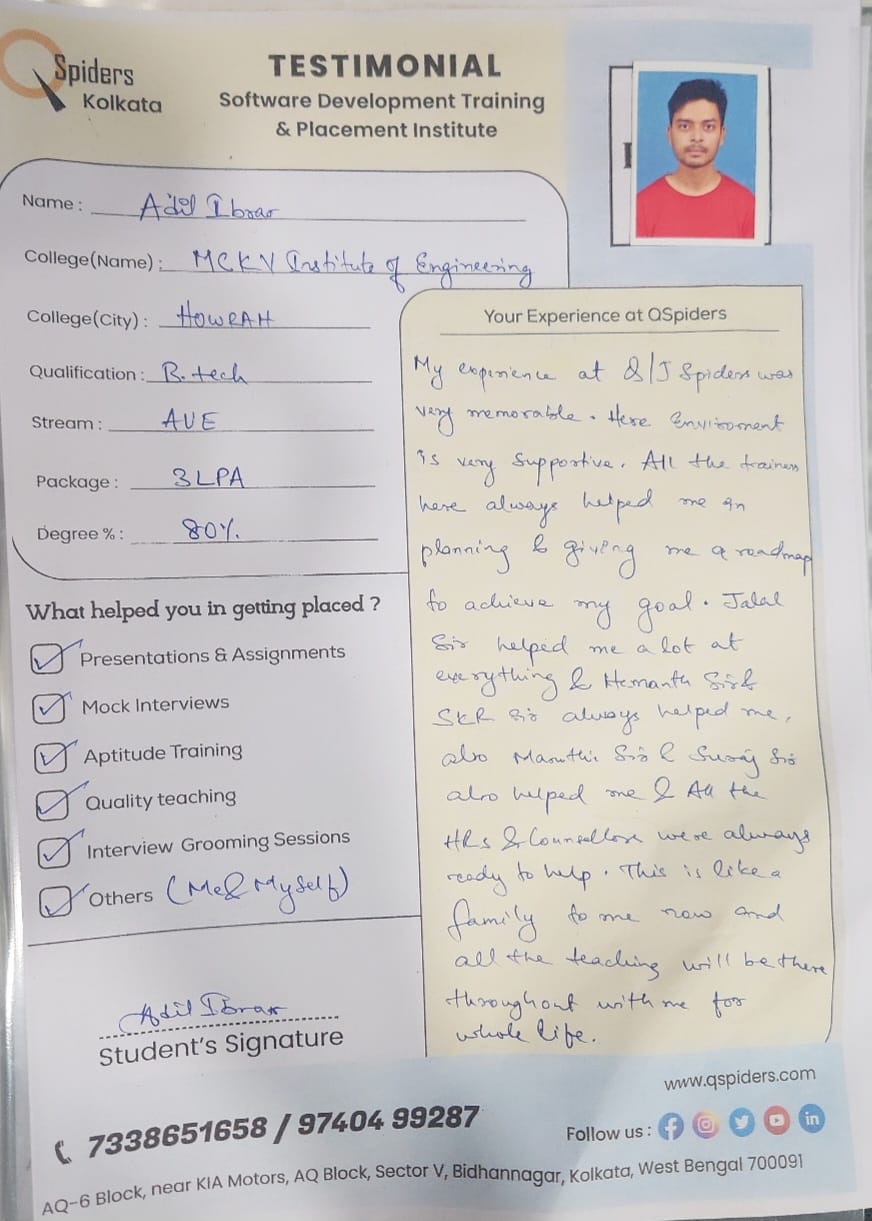 QSpiders
Kolkata
TESTIMONIAL
Software Development Training
& Placement Institute
Name : Adil Ibrar
College(Name) : MCKV Institute of Engineering
College(City) : HOWRAH
Qualification : B.tech
Stream : AUE
Package : 3LPA
Degree % : 80%
What helped you in getting placed ?
Presentations & Assignments
Mock Interviews
Aptitude Training
Quality teaching
Interview Grooming Sessions
Others (Me & Myself)
Adil Ibrar
Student's Signature
Your Experience at QSpiders
My experience at Q/J Spiders was
very memorable. Here Enviroment
is very supportive. All the trainers
here always helped me in
planning & giving me a roadmap
to achieve my goal. Jalal
Sir helped me a lot at
everything & Hemanth Sir &
SKR Sir always helped me,
also Maruthi Sir & Suraj Sir
also helped me & All the
HRs & Counsellors were always
ready to help. This is like a
family to me now and
all the teaching will be there
throughout with me for
whole life.
www.qspiders.com
7338651658 / 97404 99287
Follow us :
AQ-6 Block, near KIA Motors, AQ Block, Sector V, Bidhannagar, Kolkata, West Bengal 700091